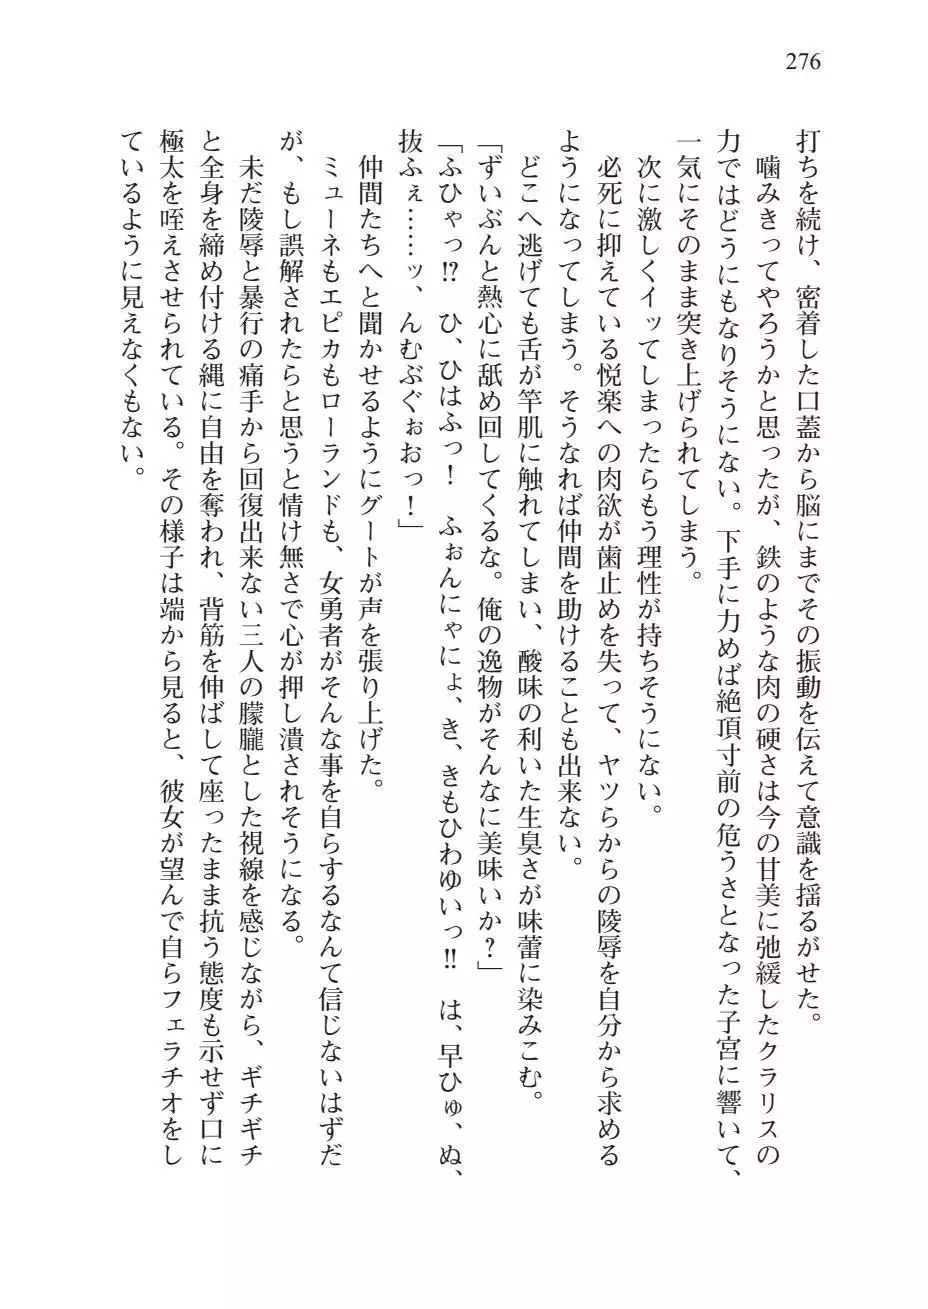 276
打ちを続け、密着した口蓋から脳にまでその振動を伝えて意識を揺るがせた。
噛みきってやろうかと思ったが、鉄のような肉の硬さは今の甘美に弛緩したクラリスの
力ではどうにもなりそうにない。下手に力めば絶頂寸前の危うさとなった子宮に響いて、
一気にそのまま突き上げられてしまう。
次に激しくイッてしまったらもう理性が持ちそうにない。
必死に抑えている悦楽への肉欲が歯止めを失って、ヤツらからの陵辱を自分から求める
ようになってしまう。そうなれば仲間を助けることも出来ない。
どこへ逃げても舌が竿肌に触れてしまい、酸味の利いた生臭さが味蕾に染みこむ。
「ずいぶんと熱心に舐め回してくるな。俺の逸物がそんなに美味いか？」
「ふひゃっ!?　ひ、ひはふっ！　ふぉんにゃにょ、き、きもひわゆいっ!!　は、早ひゅ、ぬ、
抜ふぇ……ッ、んむぶぐぉおっ！」
仲間たちへと聞かせるようにグートが声を張り上げた。
ミューネもエピカもローランドも、女勇者がそんな事を自らするなんて信じないはずだ
が、もし誤解されたらと思うと情け無さで心が押し潰されそうになる。
未だ陵辱と暴行の痛手から回復出来ない三人の朦朧とした視線を感じながら、ギチギチ
と全身を締め付ける縄に自由を奪われ、背筋を伸ばして座ったまま抗う態度も示せず口に
極太を咥えさせられている。その様子は端から見ると、彼女が望んで自らフェラチオをし
ているように見えなくもない。